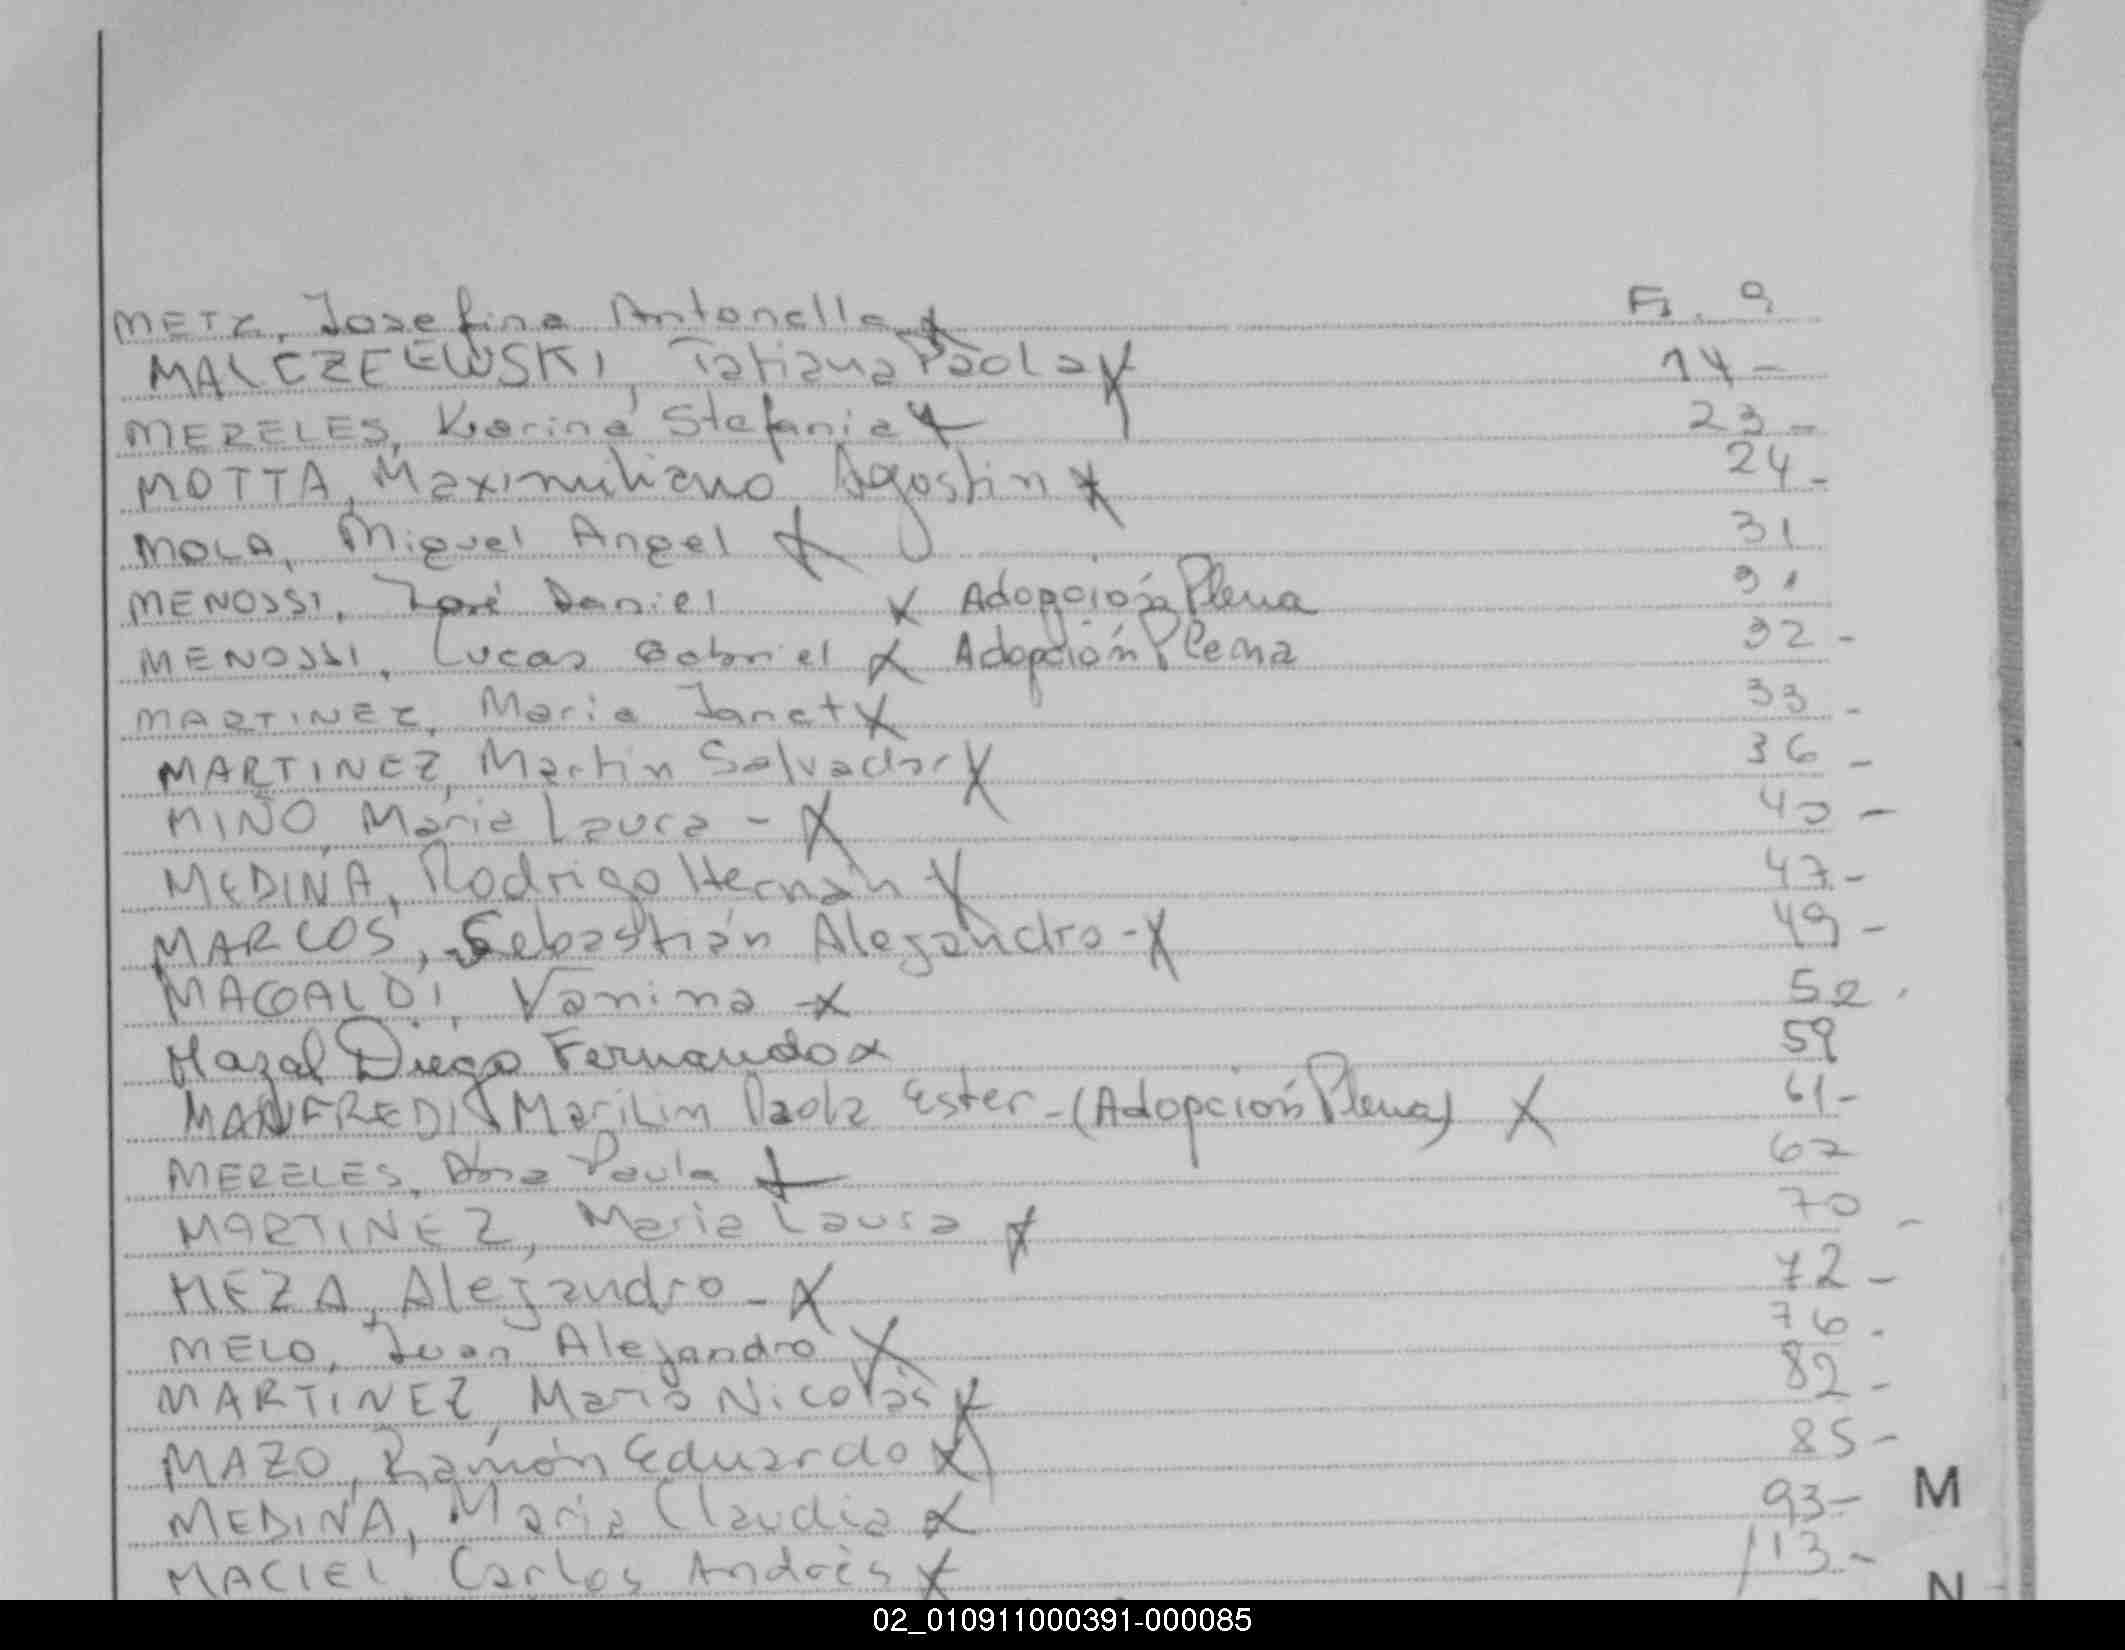 METZ, Josefina Antonella x Fs. 9
MALCZEEWSKI, Tatiana Paola x 14 -
MERELES, Karina Stefania x 23 -
MOTTA, Maximiliano Agostin x 24 -
MOLA, Miguel Angel x 31
MENOSSI, José Daniel x Adopción Plena 31
MENOSSI, Lucas Gabriel x Adopción Plena 32 -
MARTINEZ, Maria Janet x 33 -
MARTINEZ, Martin Salvador x 36 -
MIÑO, Maria Laura - x 40 -
MEDINA, Rodrigo Hernán x 47 -
MARCOS, Sebastián Alejandro - x 49 -
MAGALDI, Vanina - x 52
Mazal Diego Fernando x 59
MANFREDI, Marilin Paola Ester - (Adopción Plena) x 61 -
MERELES, Ana Paula x 67
MARTINEZ, Maria Laura x 70 -
MEZA, Alejandro - x 72 -
MELO, Juan Alejandro x 76 -
MARTINEZ, Mario Nicolás x 82 -
MAZO, Ramón Eduardo x 85 -
MEDINA, Maria Claudia x 93 -
M
MACIEL, Carlos Andrés x 113 -
N
02_010911000391-000085